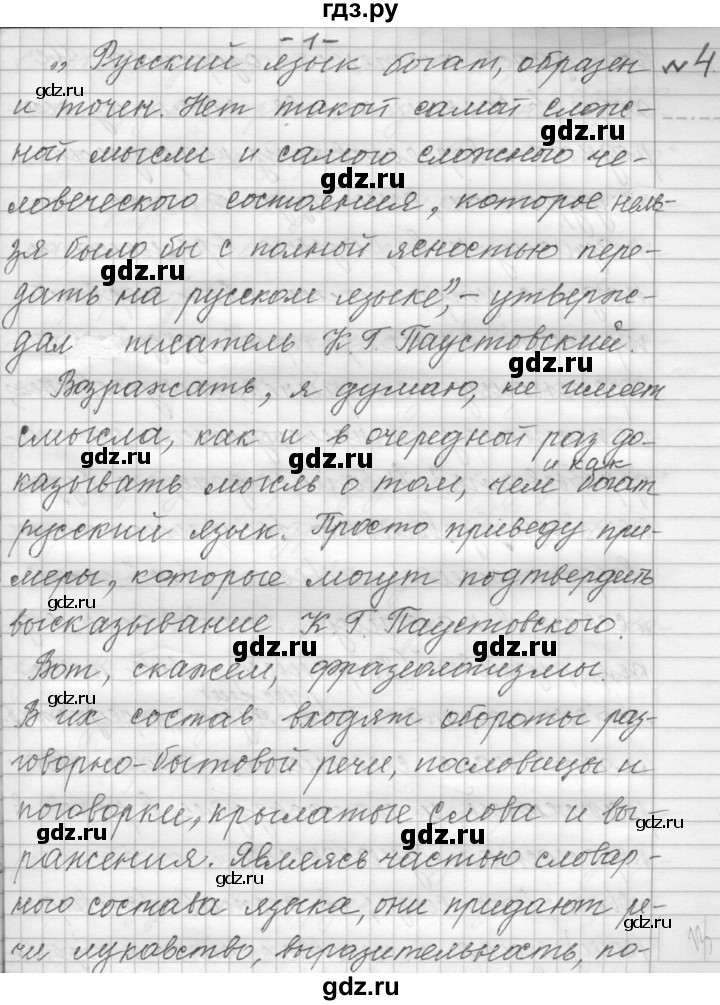 гдз.ру
-1-
„ Русский язык богат, образен №4
и точен. Нет такой самой слож-
gdz.ru
ной мысли и самого сложного че-
gdz.ru
ловеческого состояния, которое нель-
зя было бы с полной ясностью пере-
gdz.ru
дать на русском языке", – утверж-
дал писатель К. Г. Паустовский.
gdz.ru
Возражать, я думаю, не имеет
смысла, как и в очередной раз до-
gdz.ru gdz.ru
и как
казывать мысль о том, чем богат
русский язык. Просто приведу при-
меры, которые могут подтвердить
gdz.ru
высказывание К. Г. Паустовского.
gdz.ru gdz.ru
Вот, скажем, фразеологизмы.
В их состав входят обороты раз-
говорно-бытовой речи, пословицы и
поговорки, крылатые слова и вы-
gdz.ru gdz.ru gdz.ru
ражения. Являясь частью словар-
gdz.ru
ного состава языка, они придают ре-
чи лукавство, выразительность, по-